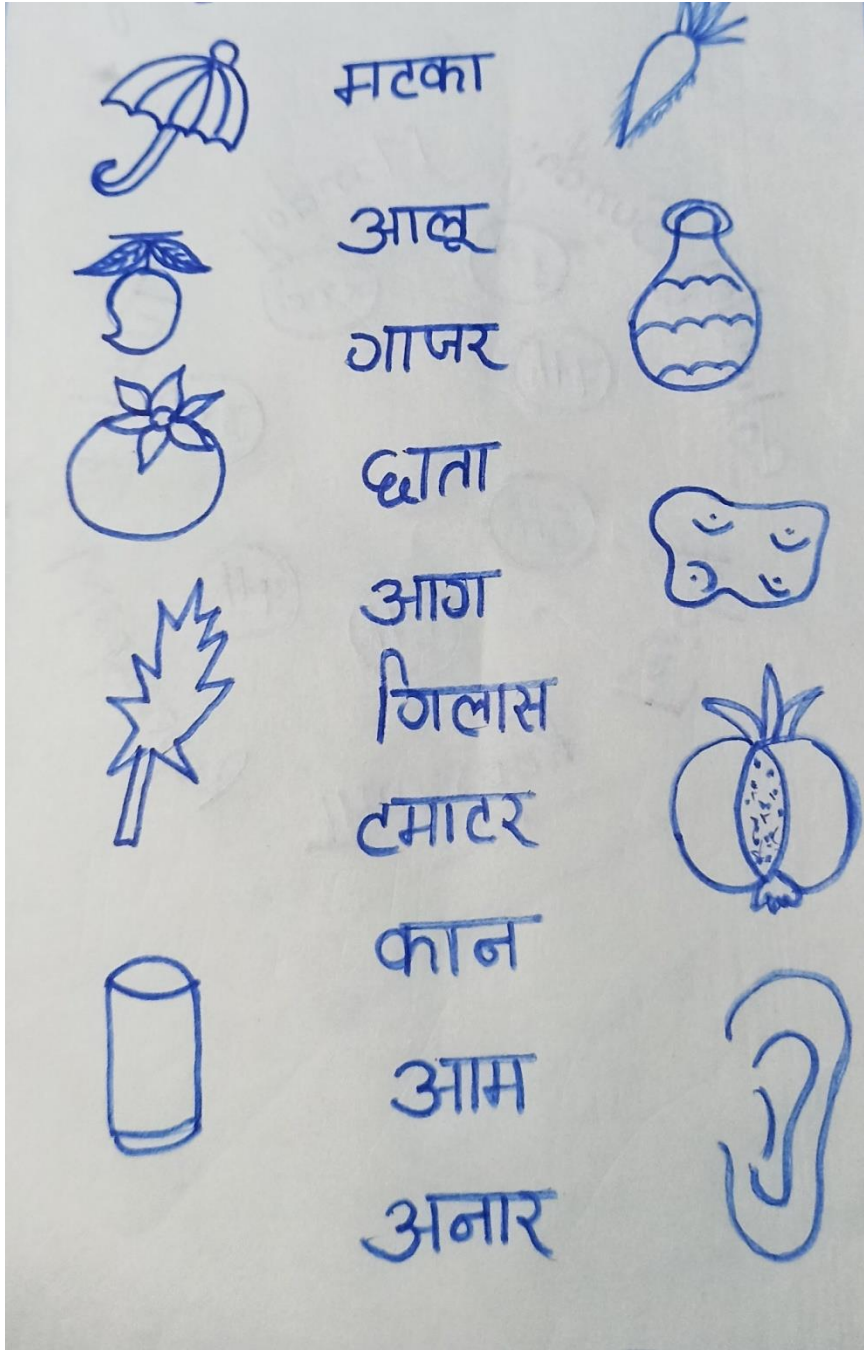 मटका
आलू
गाजर
छाता
आग
गिलास
टमाटर
कान
आम
अनार